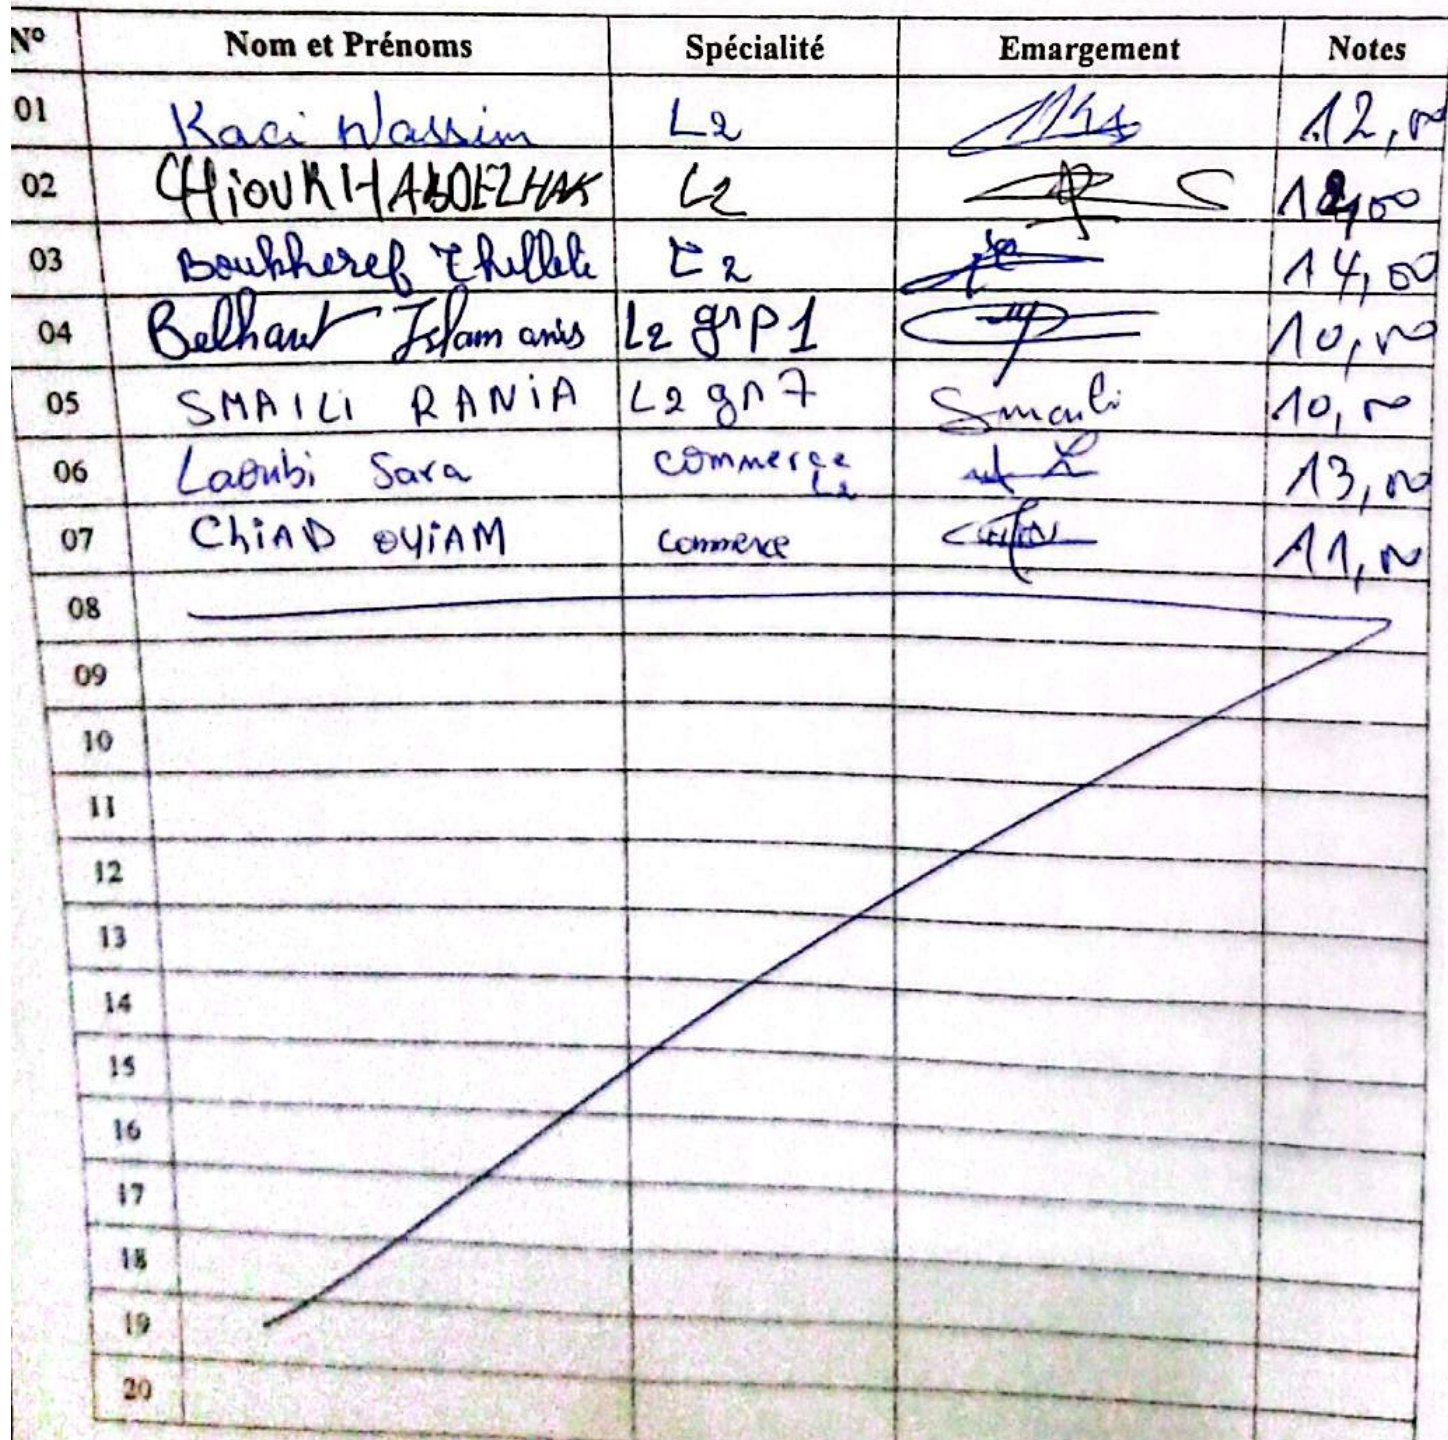 N° Nom et Prénoms Spécialité Emargement Notes
01 Kaci Wassim L2 12,00
02 CHIOUKH ABDELHAK L2 12,00
03 Boukheref Thilleli L2 14,00
04 Belhaut Islam anis L2 grp 1 10,00
05 SMAILI RANiA L2 gr 7 Smaili 10,00
06 Laoubi Sara commerce L2 13,00
07 ChiAD OUiAM commerce 11,00
08
09
10
11
12
13
14
15
16
17
18
19
20